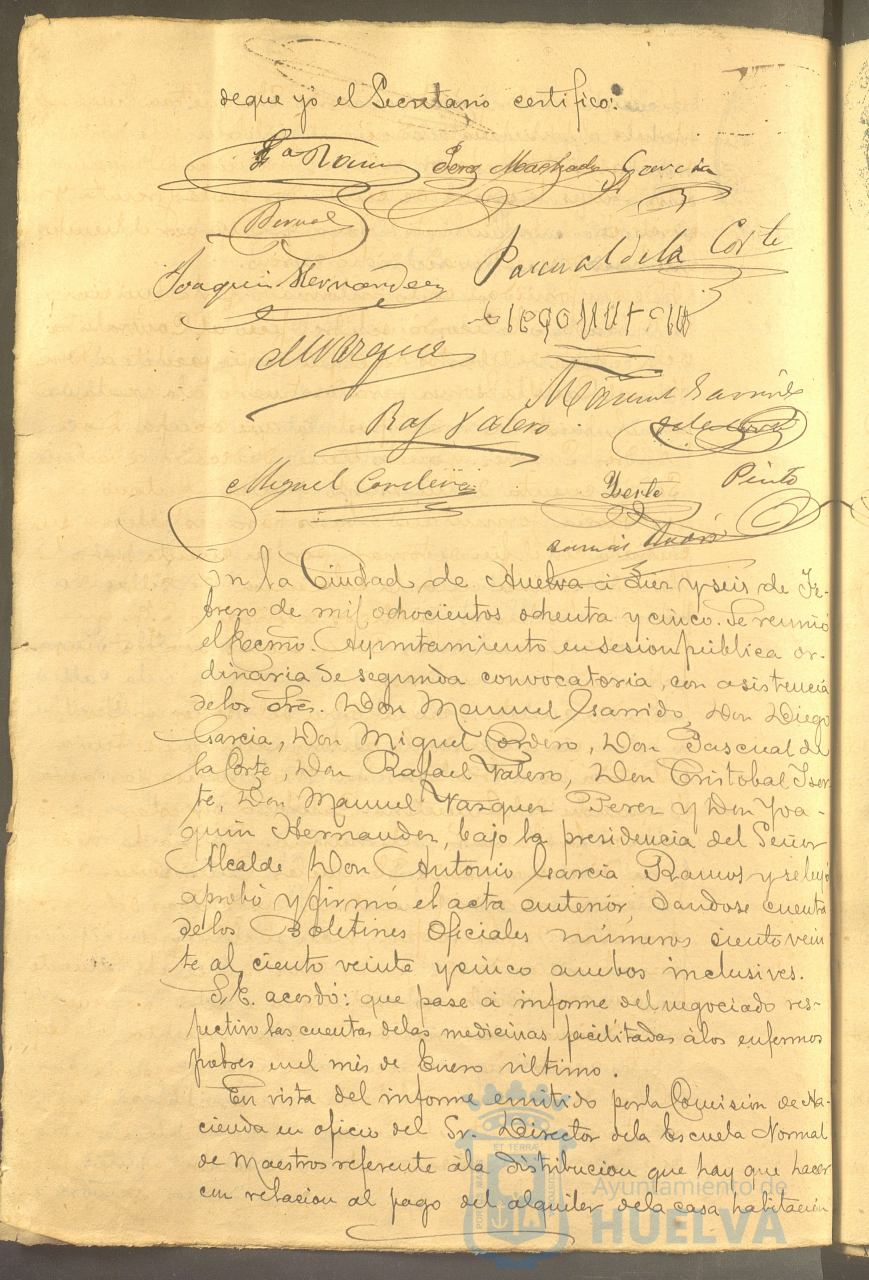 deque yo el Secretario certifico.
Ga Ramos Perez Machado Garcia
Bernal
Joaquin Hernandez Pascual dela Corte
M Vazquez
Manuel Garrido
Raf Valero
Miguel Cordero Yzerte Pinto
En la Ciudad de Huelva á diez y seis de Fe-
brero de mil ochocientos ochenta y cinco. Se reunió
el Excmo. Ayuntamiento en sesion pública or-
dinaria de segunda convocatoria, con asistencia
delos Sres. Don Manuel Garrido, Don Diego
Garcia, Don Miguel Cordero, Don Pascual de
la Corte, Don Rafael Valero, Don Cristobal Yzer-
te, Don Manuel Vazquez Perez y Don Joa-
quin Hernandez, bajo la presidencia del Señor
Alcalde Don Antonio Garcia Ramos y se leyó
aprobó y firmó el acta anterior, dandose cuenta
delos Boletines Oficiales números ciento vein
te al ciento veinte y cinco ambos inclusives.
S.E. acordó: que pase á informe del negociado res-
pectivo las cuentas delas medicinas facilitadas álos enfermos
pobres enel mes de Enero último.
En vista del informe emitido porla Comision de Ha-
cienda en oficio del Sr. Director dela Escuela Normal
de Maestros referente ála distribucion que hay que hacer
con relacion al pago del alquiler dela casa habitación
Ayuntamiento de
HUELVA